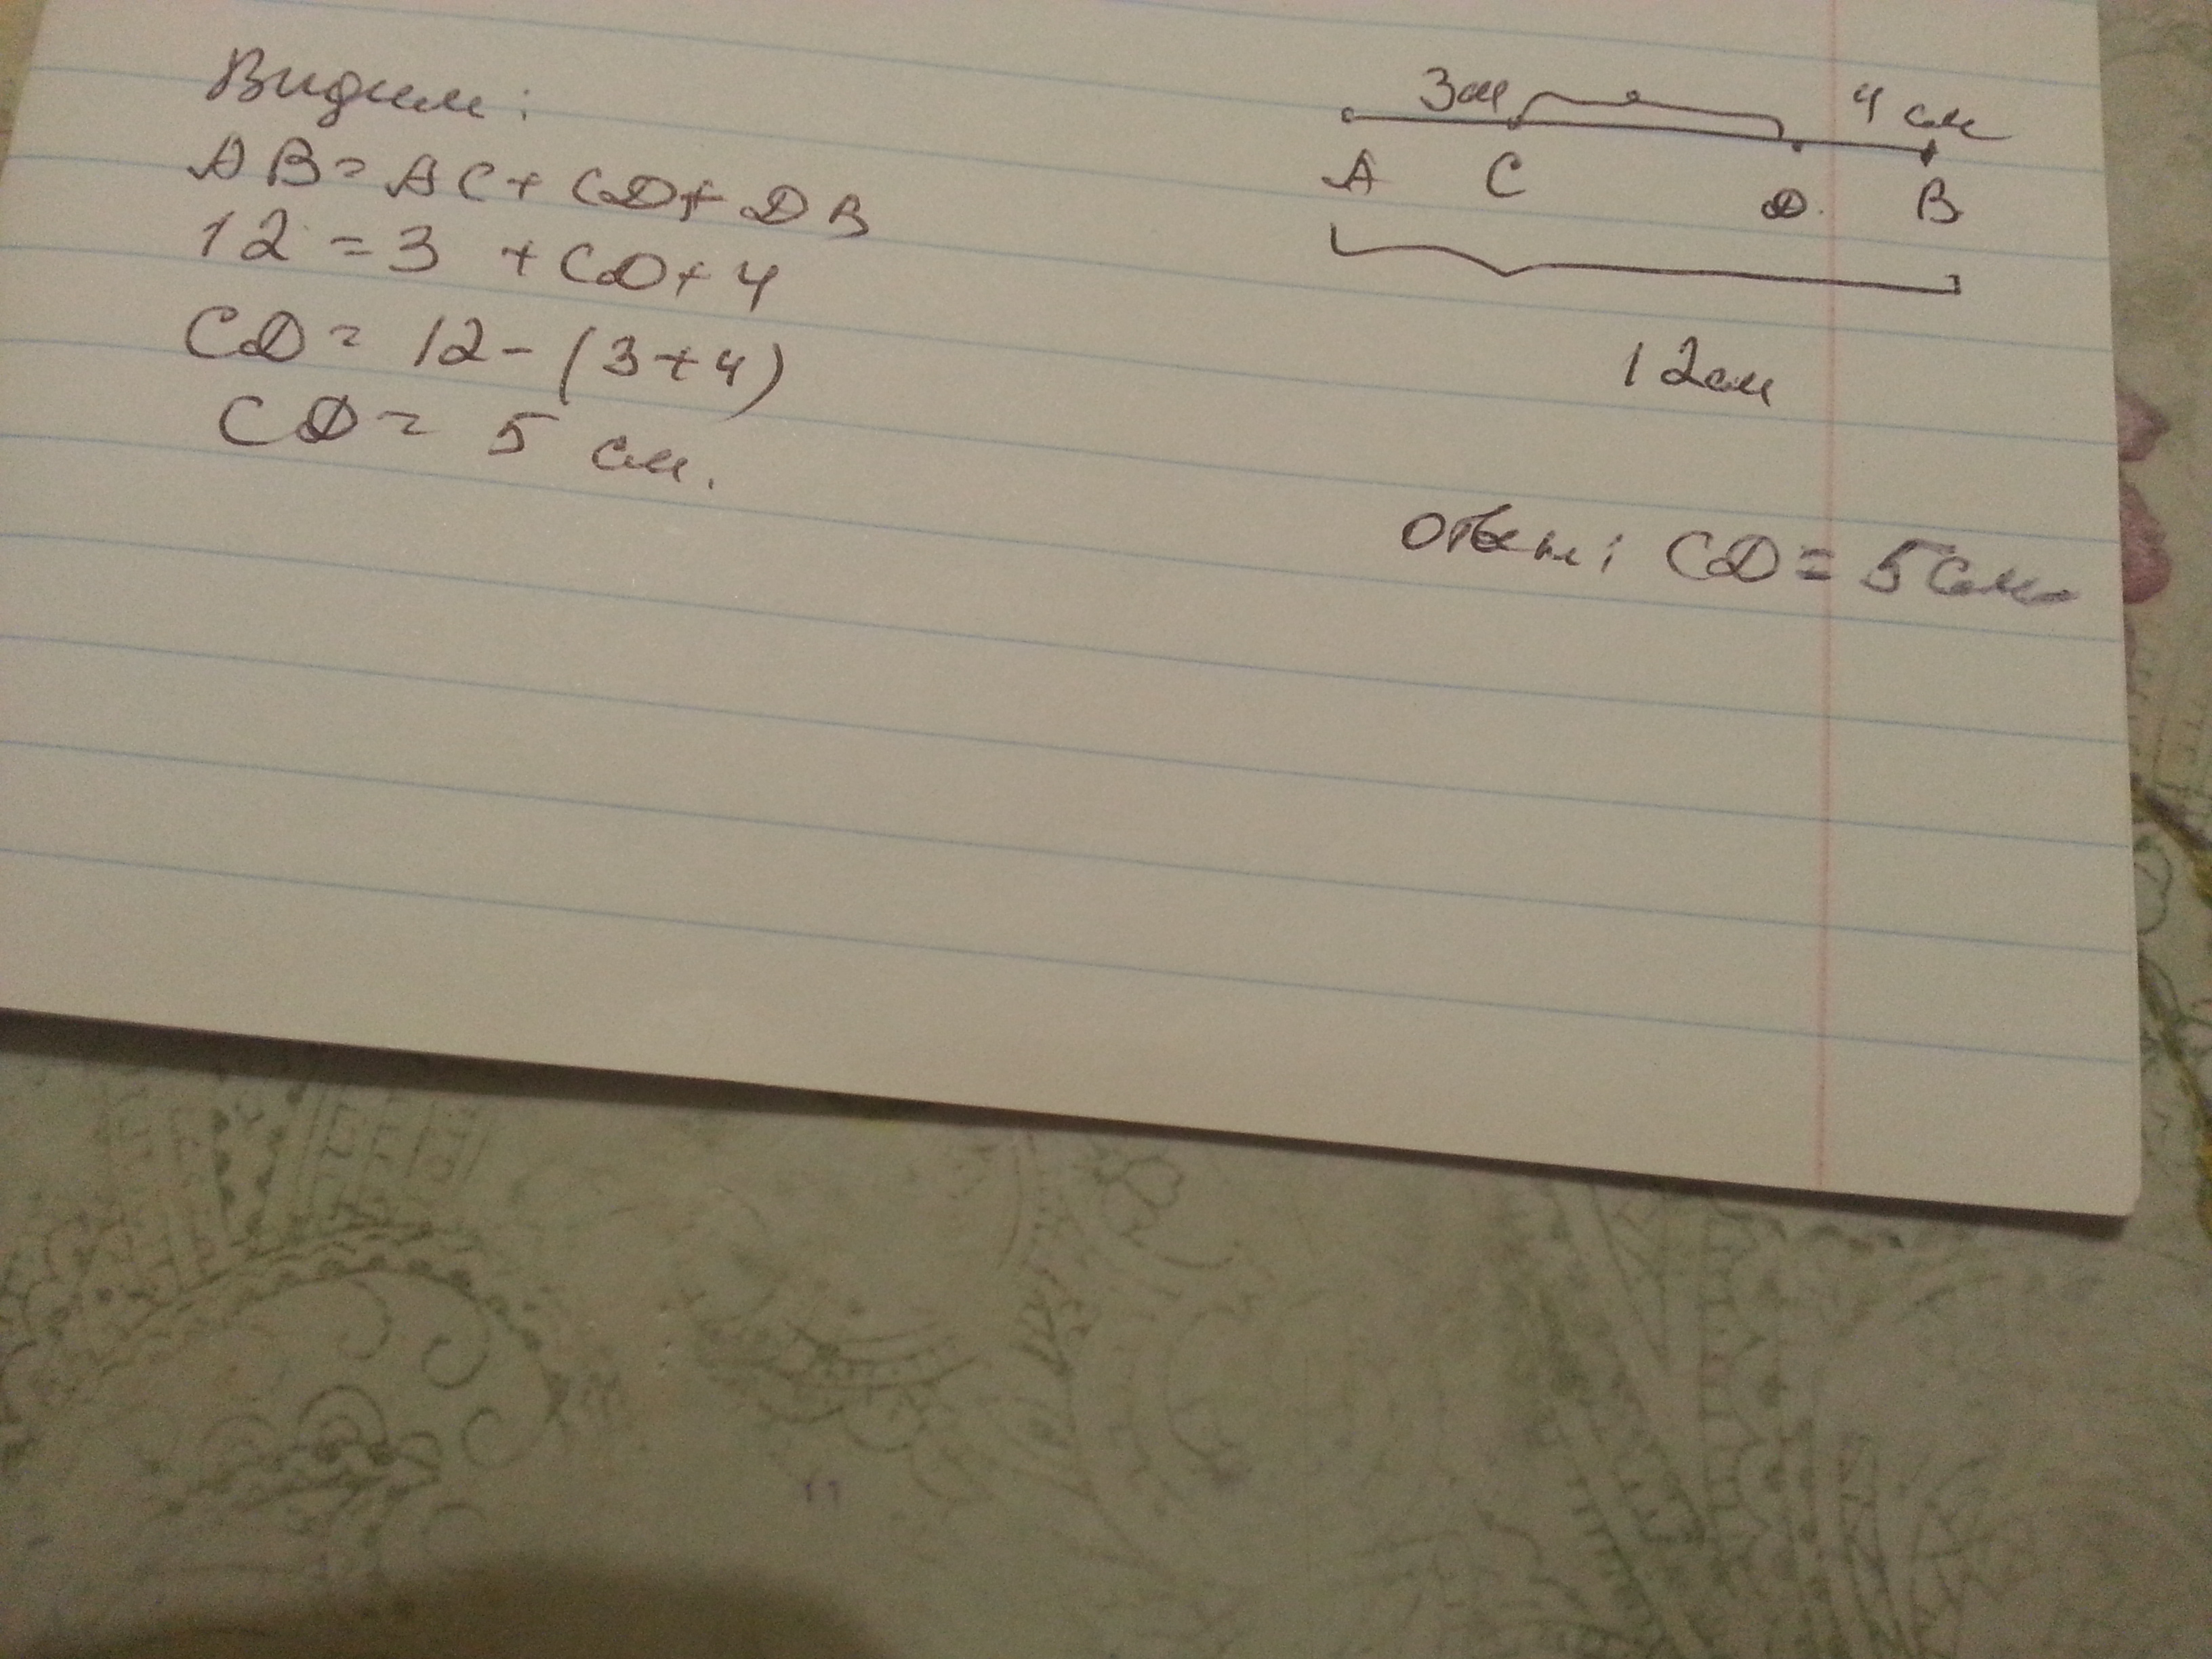 Видим:
AB = AC + CD + DB
12 = 3 + CD + 4
CD = 12 - (3 + 4)
CD = 5 см.
3см 4 см
A C D. B
12см
Ответ: CD = 5см